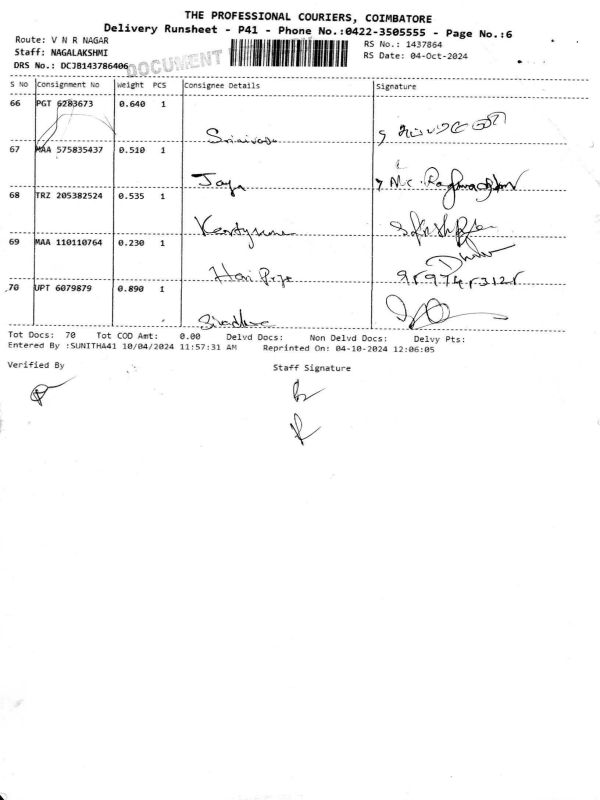 THE PROFESSIONAL COURIERS, COIMBATORE
Delivery Runsheet - P41 - Phone No.:0422-3505555 - Page No.:6
Route: V N R NAGAR
RS No.: 1437864
Staff: NAGALAKSHMI
RS Date: 04-Oct-2024
DRS No.: DCJB143786406
DOCUMENT
S No Consignment No Weight PCS Consignee Details Signature
66 PGT 6283673 0.640 1
Srinivasa
67 MAA 575835437 0.510 1
Jaya
68 TRZ 205382524 0.535 1
69 MAA 110110764 0.230 1
Hari Priya
70 UPT 6079879 0.890 1
Tot Docs: 70 Tot COD Amt: 0.00 Delvd Docs: Non Delvd Docs: Delvy Pts:
Entered By :SUNITHA41 10/04/2024 11:57:31 AM Reprinted On: 04-10-2024 12:06:05
Verified By Staff Signature